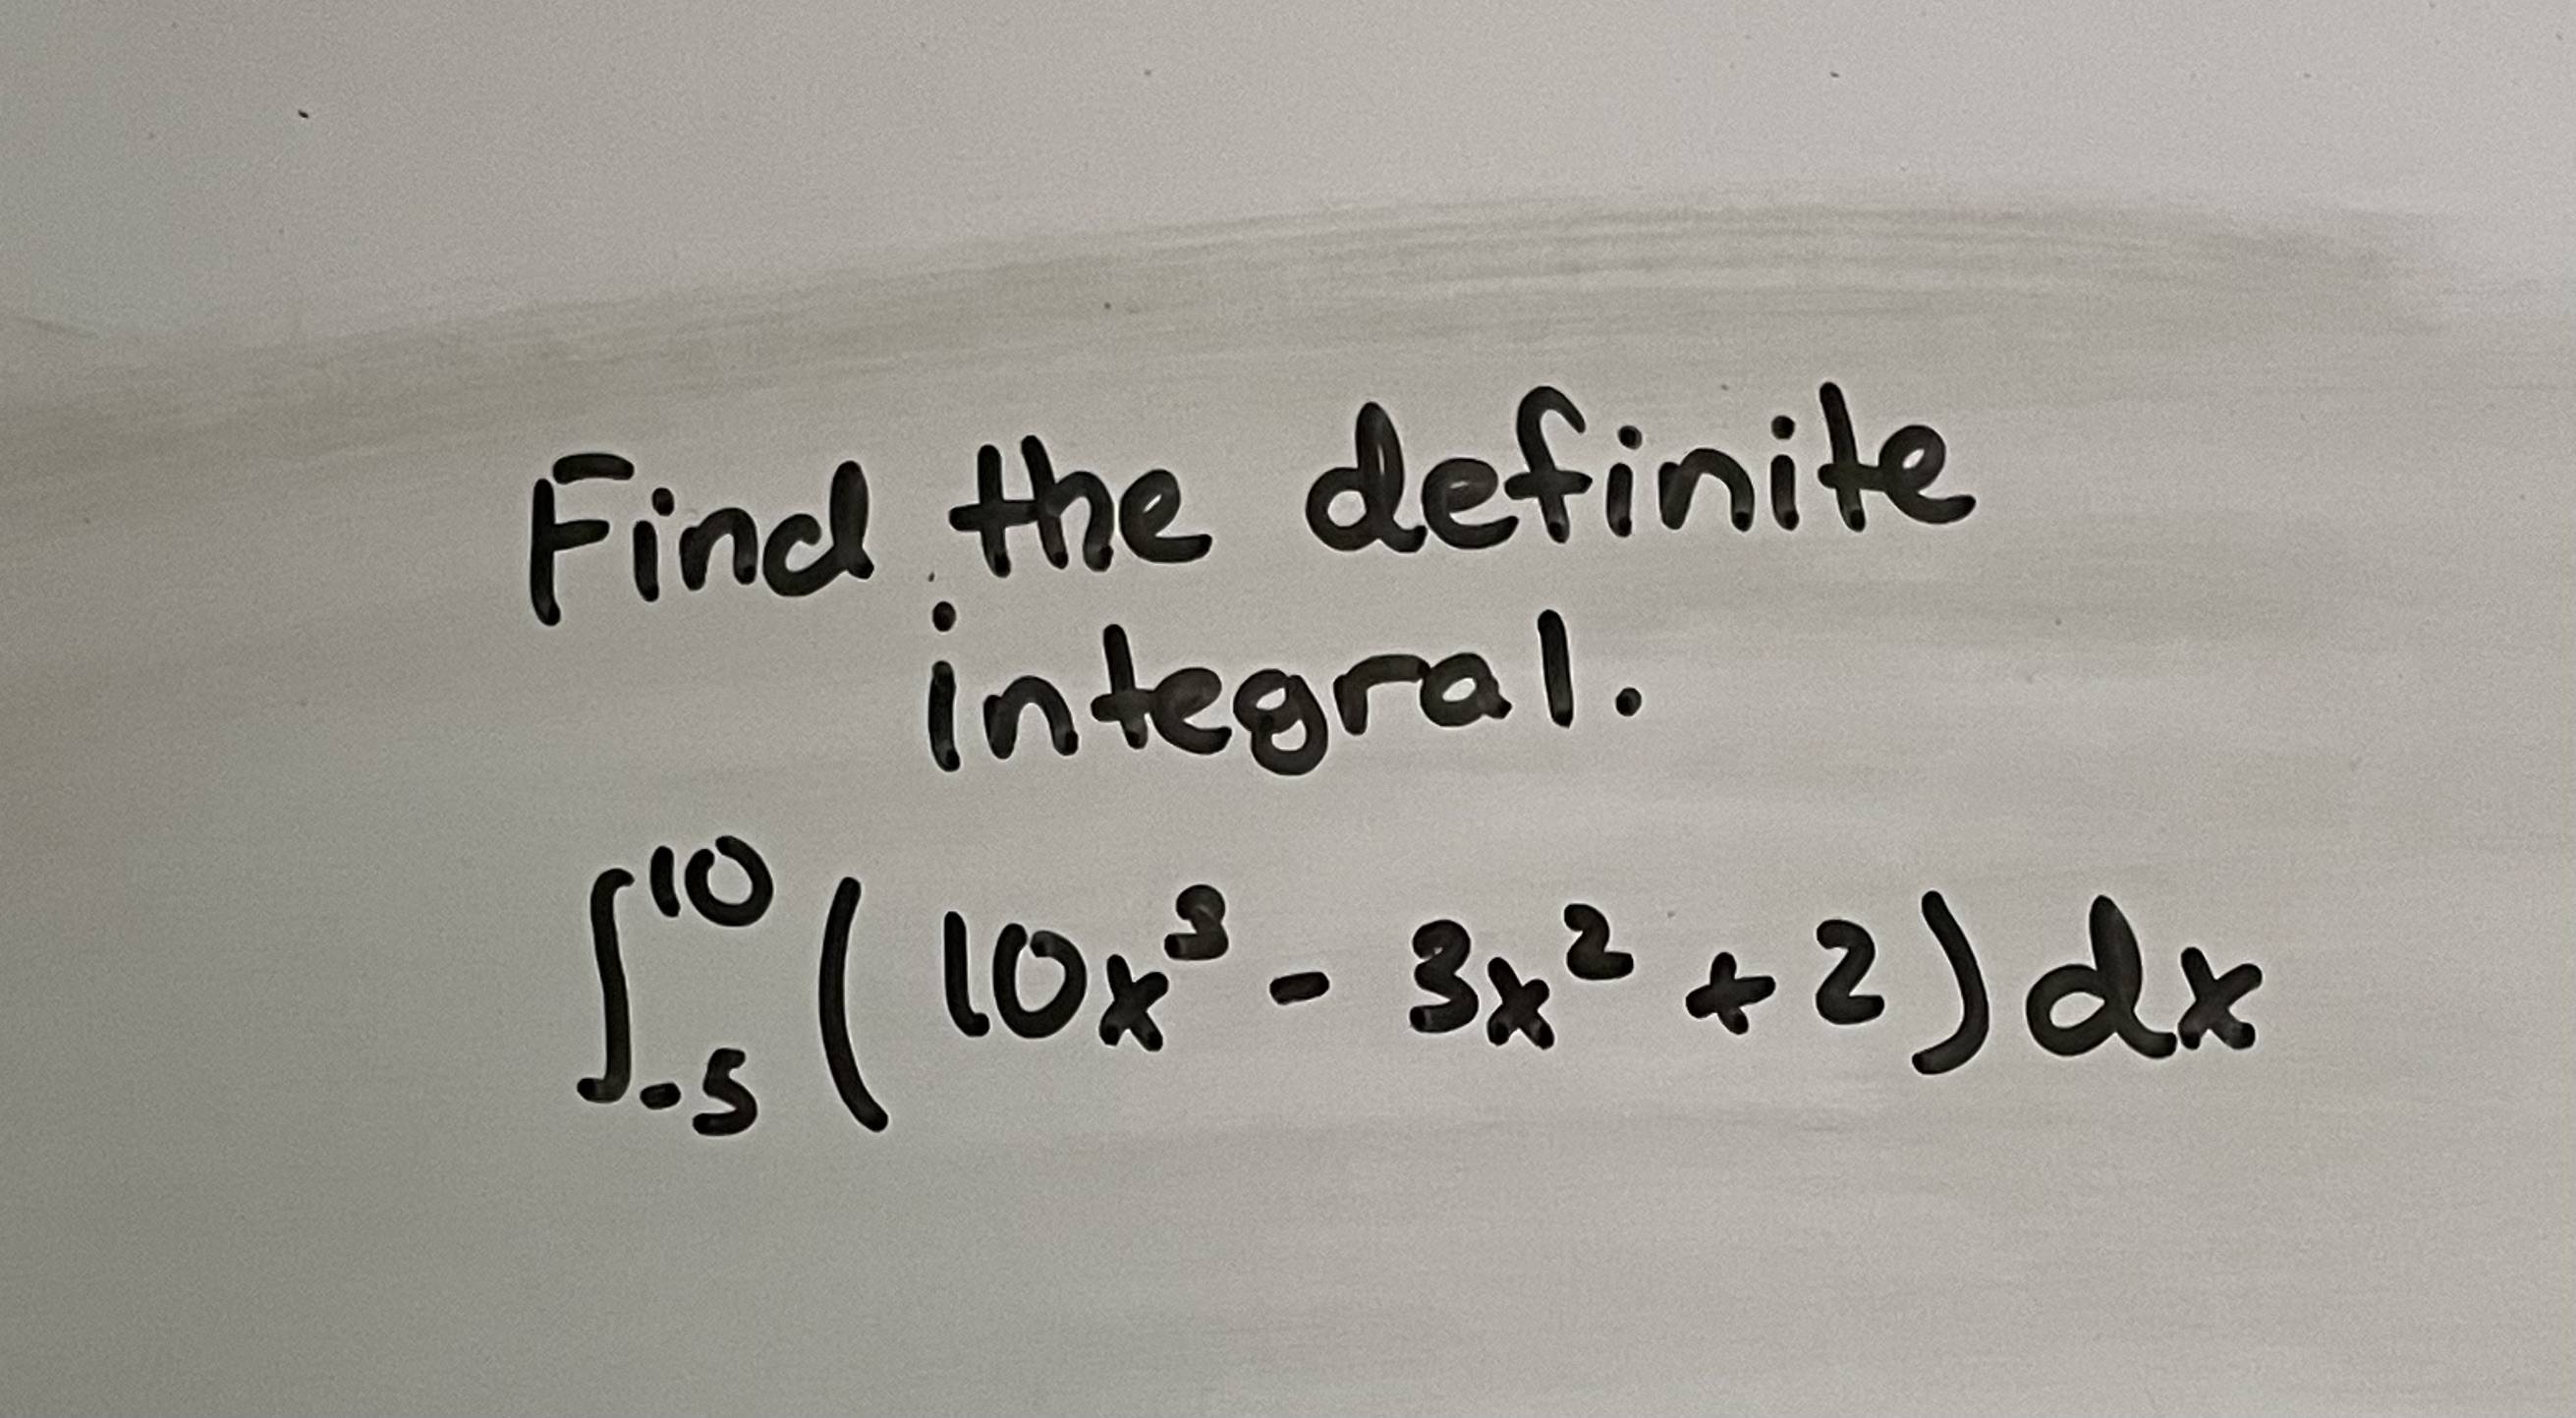 Find the definite
integral.
∫₋₅¹⁰ (10x³ - 3x² + 2) dx